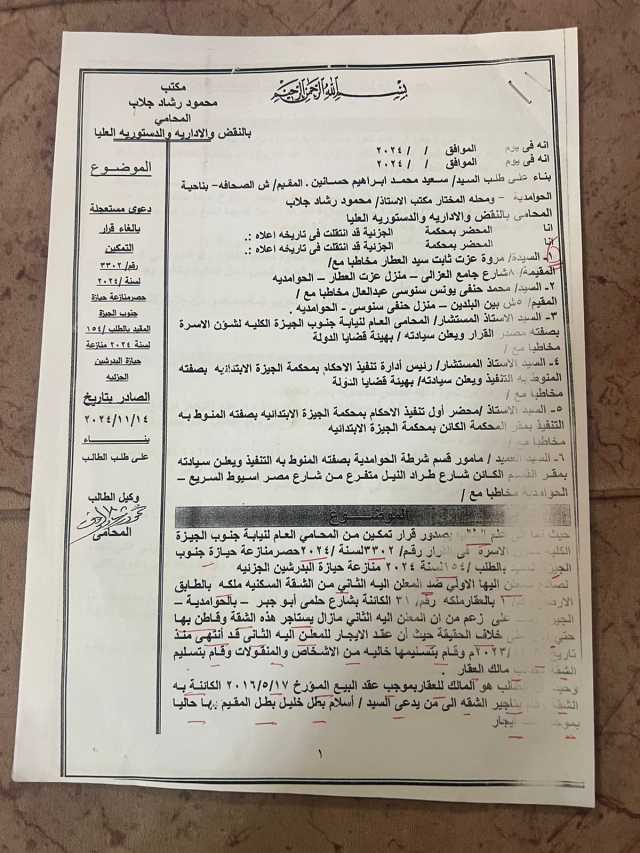 بسم الله الرحمن الرحيم
مكتب
محمود رشاد جلاب
المحامى
بالنقض والاداريه والدستوريه العليا
الموضـــوع
دعوى مستعجلة
بالغاء قرار
التمكين
رقم/ ٣٣٠٢
لسنة /٢٠٢٤
حصرمنازعة حيازة
جنوب الجيزة
المقيد بالطلب /١٥٤
لسنة ٢٠٢٤ منازعة
حيازة البدرشين
الجزئيه
الصادر بتاريخ
٢٠٢٤/١١/١٤
بنـــاء
على طلب الطالب
وكيل الطالب
المحامى
انه فى يوم الموافق / / ٢٠٢٤
انه فى يوم الموافق / / ٢٠٢٤
بناء على طلب السيد/ سعيد محمد ابراهيم حسانين . المقيم/ ش الصحافه- بناحية
الحوامدية - ومحله المختار مكتب الاستاذ/ محمود رشاد جلاب
المحامى بالنقض والاداريه والدستوريه العليا
انا المحضر بمحكمة الجزئية قد انتقلت فى تاريخه اعلاه :.
انا المحضر بمحكمة الجزئية قد انتقلت فى تاريخه اعلاه :.
١- السيدة/ مروة عزت ثابت سيد العطار مخاطبا مع/
المقيمة/ ٨شارع جامع العزالى - منزل عزت العطار - الحوامديه
٢- السيد/ محمد حنفى يونس سنوسى عبدالعال مخاطبا مع /
المقيم/ ٥ش بين البلدين – منزل حنفى سنوسى - الحوامديه .
٣- السيد الاستاذ المستشار/ المحامى العام لنيابة جنوب الجيزة الكليه لشؤن الاسرة
بصفته مصدر القرار ويعلن سيادته / بهيئة قضايا الدولة
مخاطبا مع /
٤- السيد الاستاذ المستشار/ رئيس أدارة تنفيذ الاحكام بمحكمة الجيزة الابتدائيه بصفته
المنوط به التنفيذ ويعلن سيادته/ بهيئة قضايا الدولة
مخاطبا مع /
٥- السيد الاستاذ /محضر أول تنفيذ الاحكام بمحكمة الجيزة الابتدائيه بصفته المنوط به
التنفيذ بمقر المحكمة الكائن بمحكمة الجيزة الابتدائيه
مخاطبا مع /
٦- السيد العميد / مامور قسم شرطة الحوامدية بصفته المنوط به التنفيذ ويعلن سيادته
بمقر القسم الكائن شارع طراد النيل متفرع من شارع مصر اسيوط السريع –
الحوامديه مخاطبا مع /
الموضـــوع
حيث نما الى علم بصدور قرار تمكين من المحامي العام لنيابة جنوب الجيزة
الكليه الاسرة فى القرار رقم/ ٣٣٠٢ لسنة /٢٠٢٤ حصرمنازعة حيازة جنوب
الجيزة بالطلب /١٥٤ لسنة ٢٠٢٤ منازعة حيازة البدرشين الجزئيه
لصالح المعلن اليها الاولي ضد المعلن اليه الثاني من الشقة السكنيه ملكه بالطابق
بالعقارملكه رقم/ ٣١ الكائنة بشارع حلمى أبو جبر – بالحوامدية –
الجيزة على زعم من ان المعلن اليه الثاني مازال يستاجر هذه الشقة وقاطن بها
حتى على خلاف الحقيقة حيث أن عقد الايجار للمعلن اليه الثانى قد أنتهى منذ
تاريخ /٢٠٢٣م وقام بتسليمها خاليه من الاشخاص والمنقولات وقام بتسليم
الشقة مالك العقار .
وحيث الطالب هو المالك للعقار بموجب عقد البيع المؤرخ ٢٠١٦/٥/١٧ الكائنة به
الشقة بتاجير الشقه الى من يدعى السيد / أسلام بطل خليل بطل المقيم بها حاليا
بموجب ايجار
١